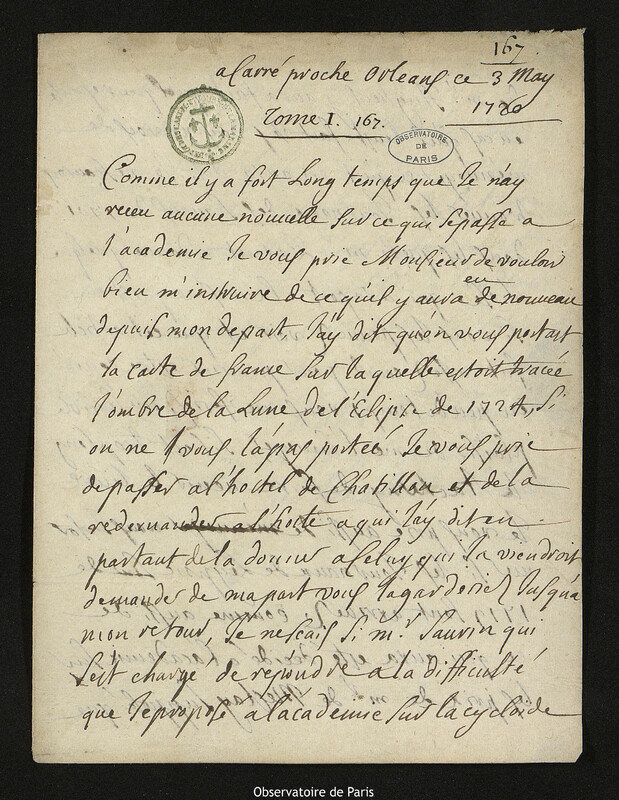 167.
a Carré proche Orleans ce 3 May
1726
Tome I. 167.
OBSERVATOIRE DE PARIS
Comme il y a fort Long temps que Je n'ay
receu aucune nouvelle Sur ce qui Se passe a
l'academie Je vous prie Monsieur de vouloir
bien m'instruire de ce qu'il y aura eu de nouveau
depuis mon depart, J'ay dit qu'on vous portast
la carte de france Sur laquelle estoit tracée
l'ombre de la Lune de l'Eclipse de 1724, Si
on ne vous l'a pas portée Je vous prie
de passer a l'hostel de Chatillon et de la
redemander a l'hoste a qui J'ay dit en
partant de la donner a Celuy qui la viendroit
demander de ma part vous la garderiés Jusqu'a
mon retour, Je ne scais Si mr. Saurin qui
S'est chargé de repondre a la difficulté
que Je propose a l'academie Sur la cycloide
Observatoire de Paris